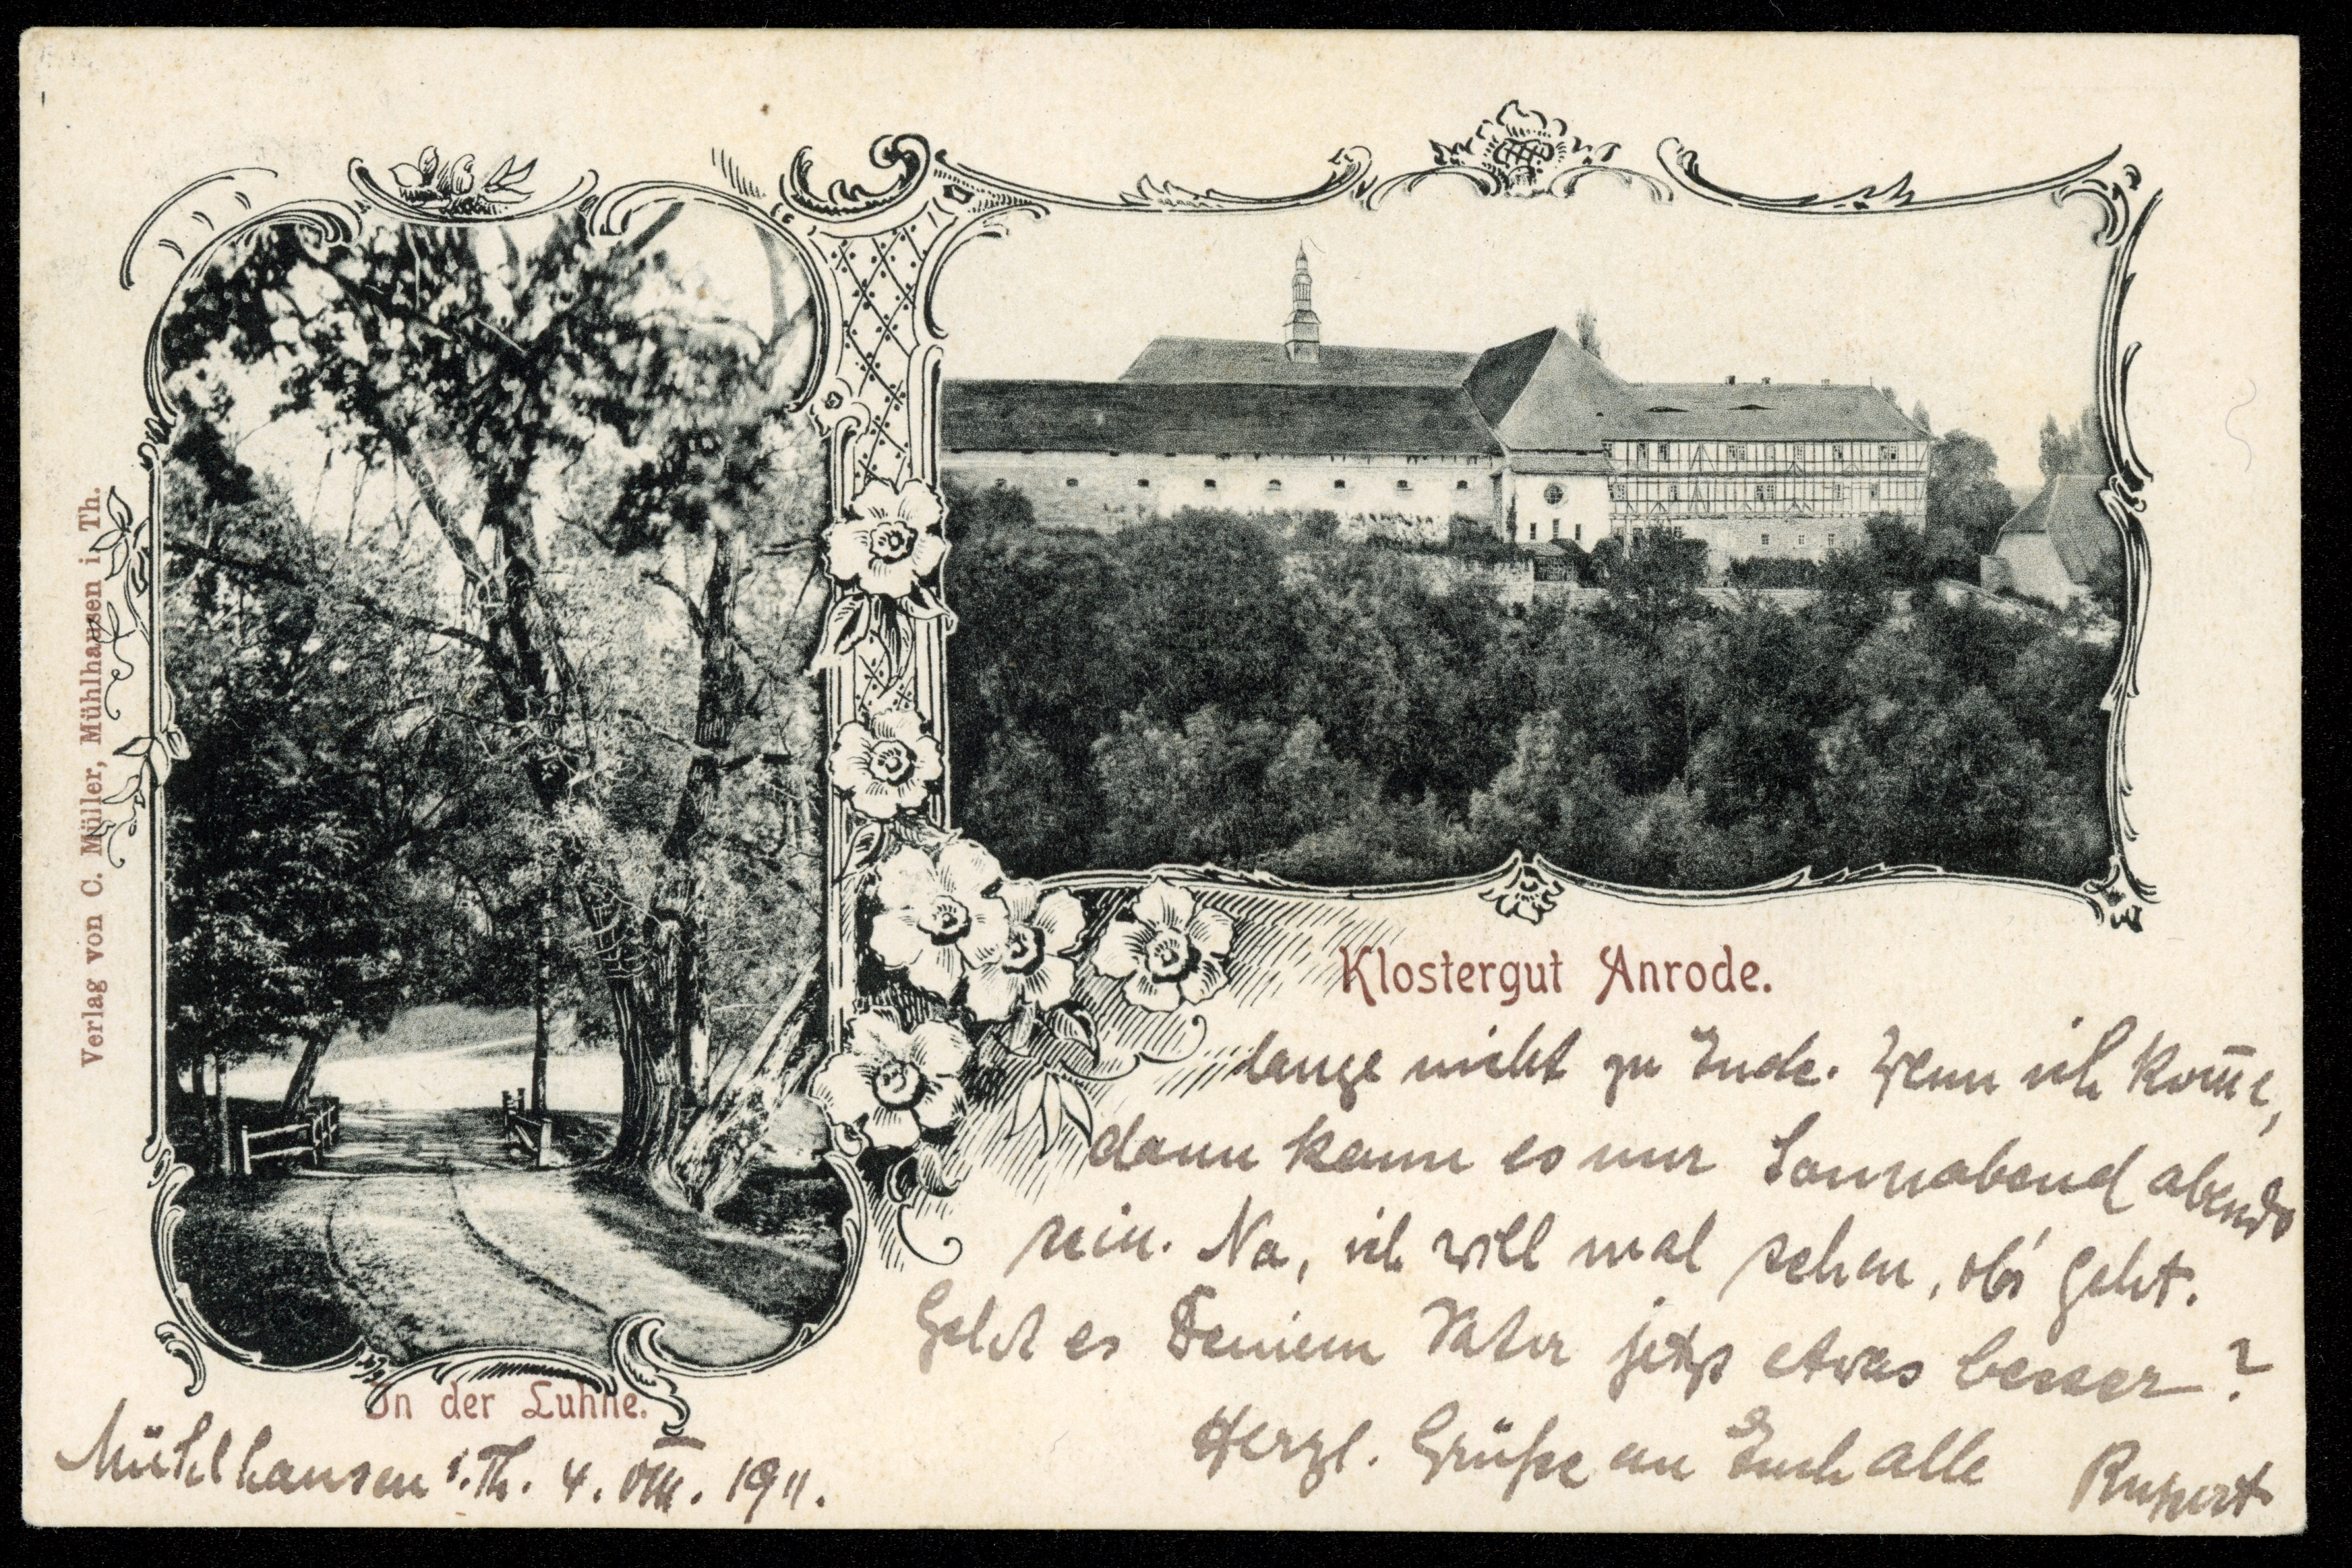 Verlag von C. Müller, Mühlhausen i. Th.
Klostergut Anrode.
lange nicht zu Ende. Wenn ich kom̅e,
dann kann es nur Sonnabend abends
sein. Na, ich will mal sehen, ob's geht.
Geht es Deinem Vater jetzt etwas besser?
Herzl. Grüße an Euch alle Rupert
In der Luhne.
Mühlhausen i. Th. 4. VIII. 1911.